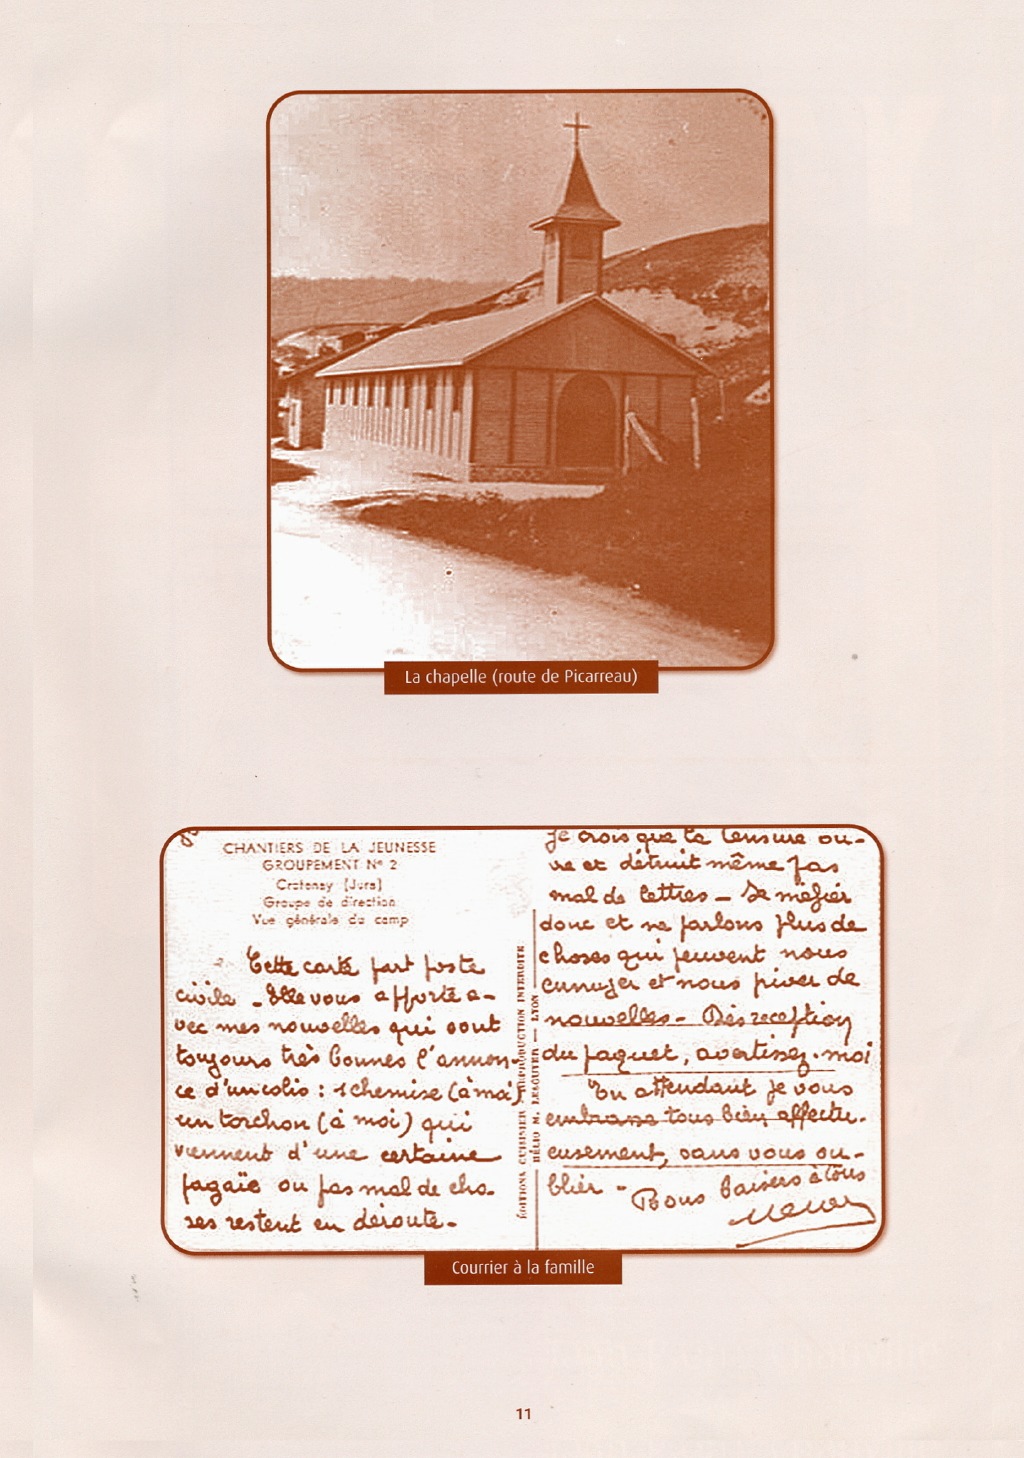 La chapelle (route de Picarreau)
CHANTIERS DE LA JEUNESSE
GROUPEMENT Nº 2
Crotenay (Jura)
Groupe de direction
Vue générale du camp
Cette carte part poste
civile - Elle vous apporte a-
vec mes nouvelles qui sont
toujours très bonnes l'annon-
ce d'un colis : 1 chemise (à moi)
un torchon (à moi) qui
viennent d'une certaine
pagaïe ou pas mal de cho-
ses restent en déroute -
ÉDITIONS CUISINIER REPRODUCTION INTERDITE
HÉLIO M. LESCUYER — LYON
Je crois que la censure ou-
vre et détruit même pas
mal de lettres - Se méfier
donc et ne parlons plus de
choses qui peuvent nous
ennuyer et nous priver de
nouvelles - Dès reception
du paquet, avertissez-moi
En attendant je vous
embrasse tous bien affectu-
eusement, sans vous ou-
blier -
Bons baisers à tous
Courrier à la famille
11